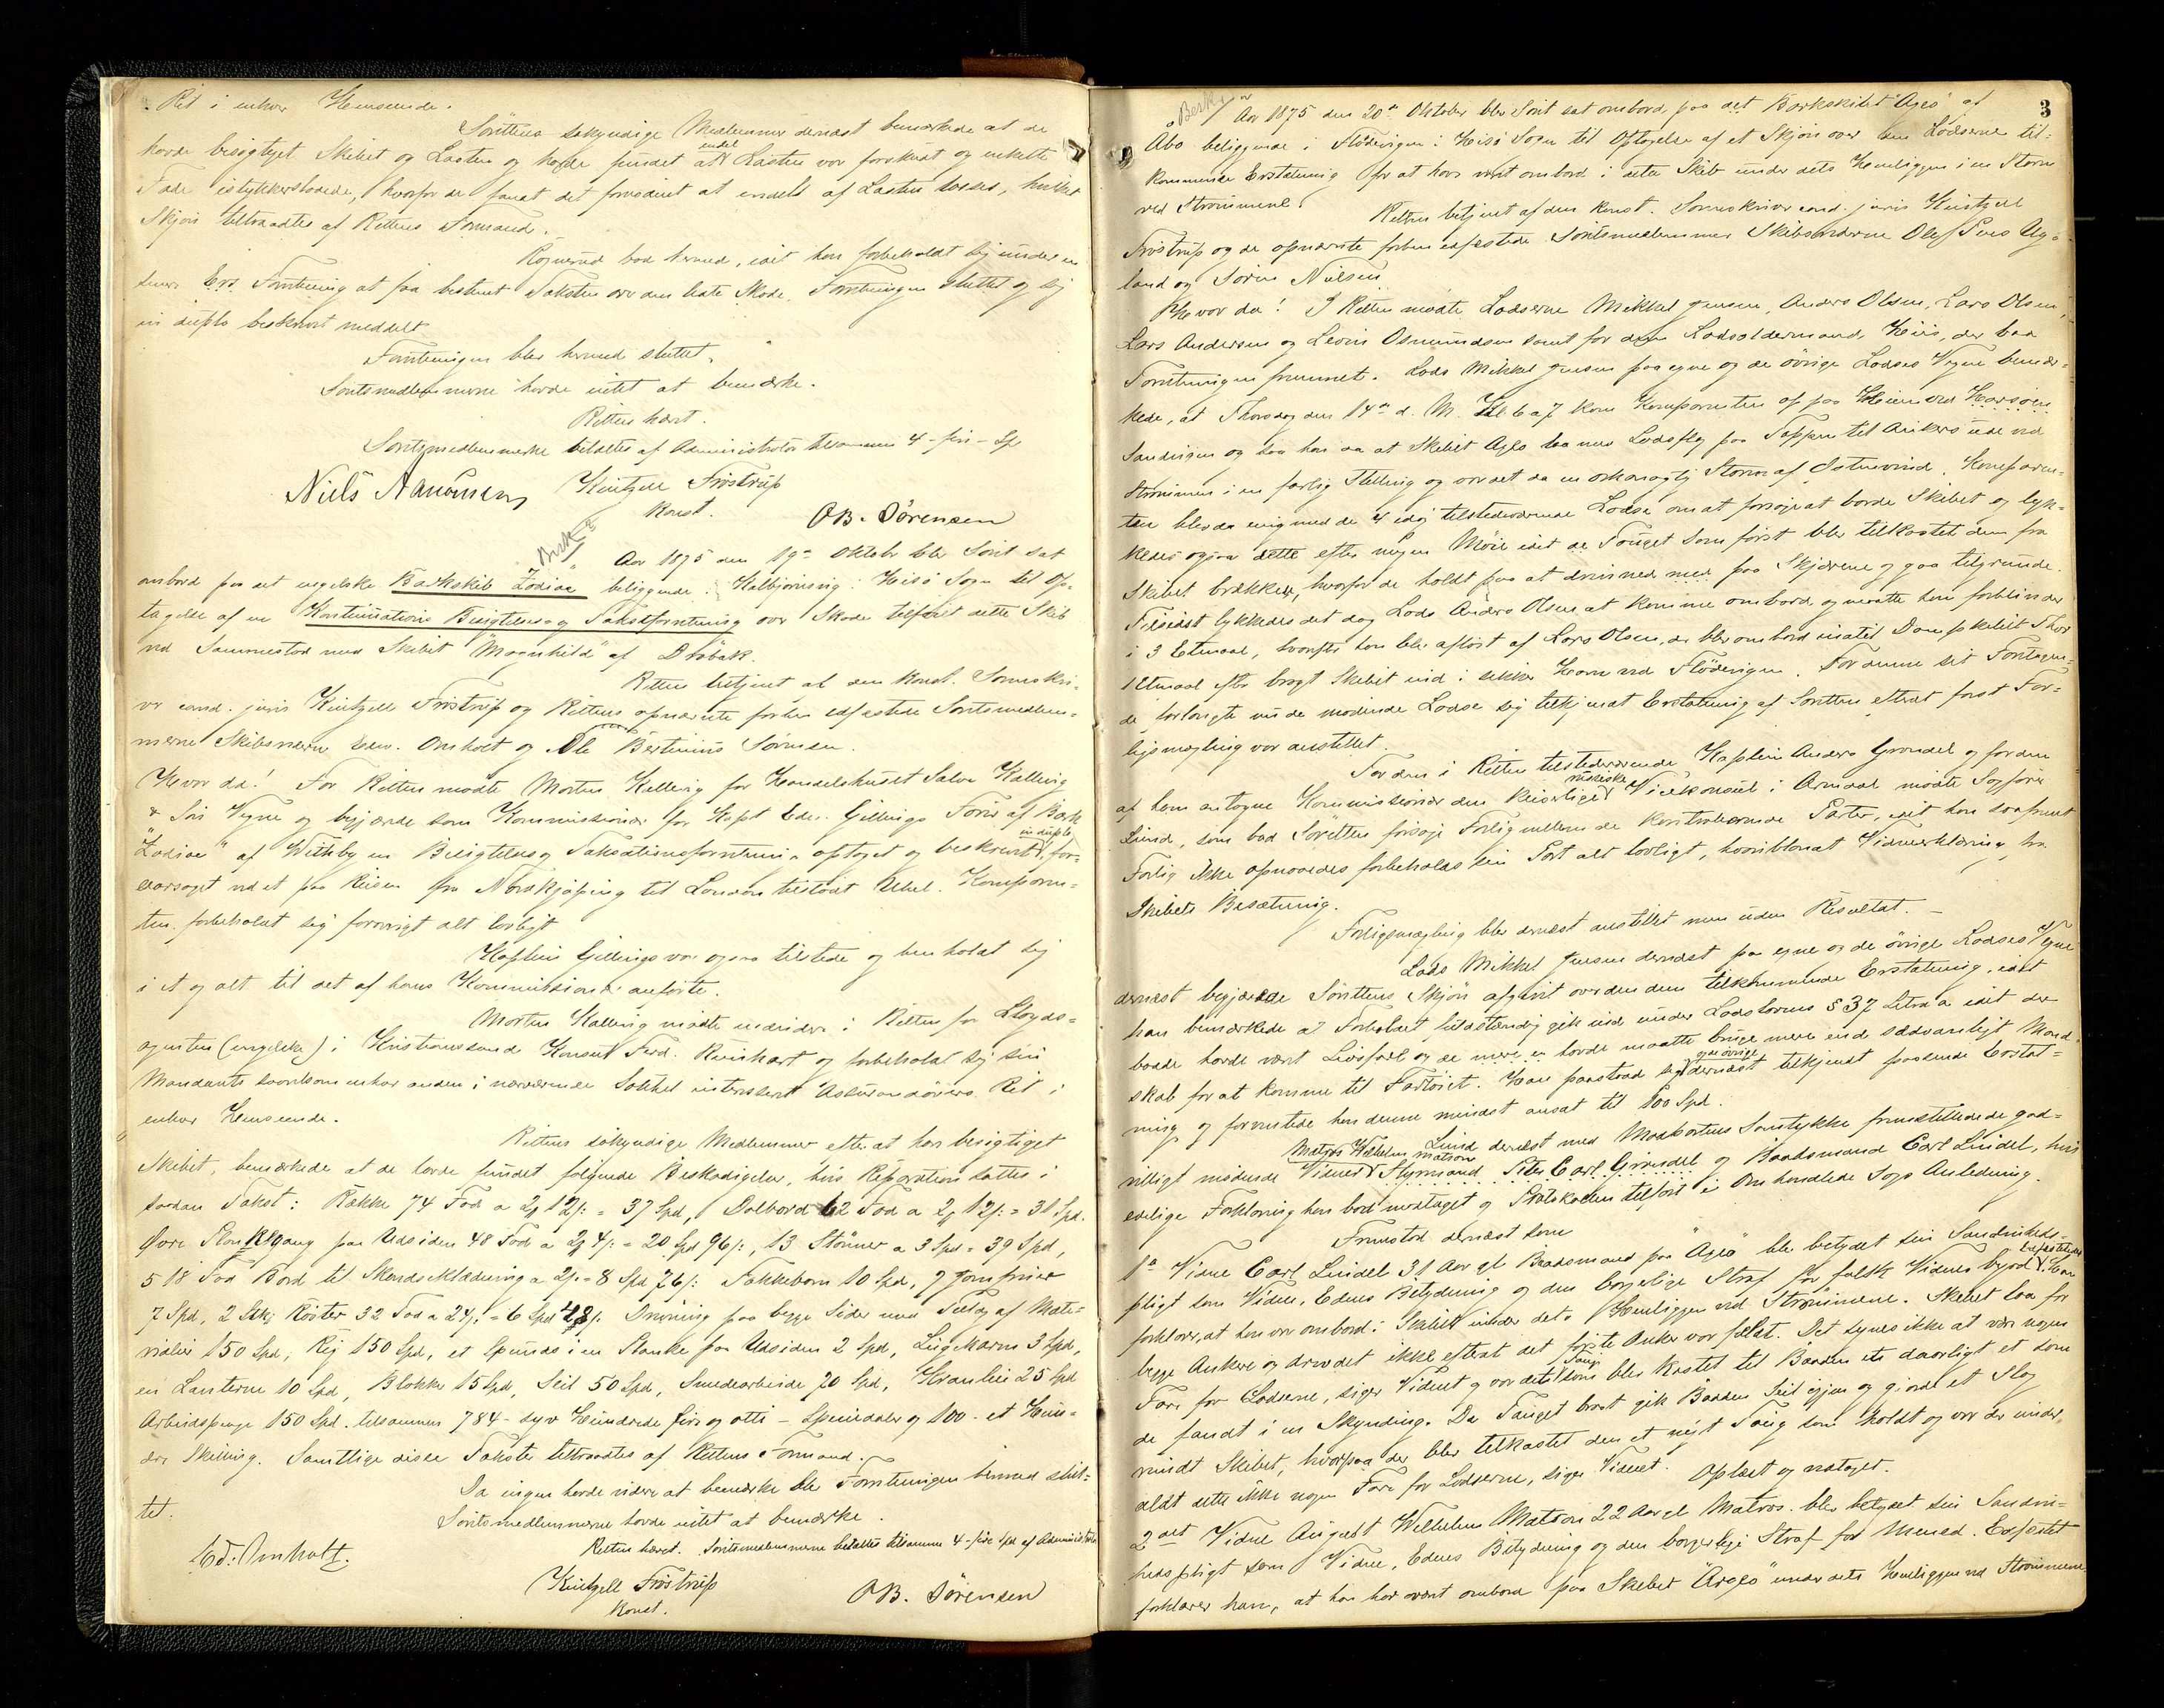 Ret i enhver Henseende.
Sørettens søkyndige Medlemmer dernæst bemærkede at de
havde besigtiget Skibet og Lasten og havde fundet at endel Lasten var forskudt og enkelte
Fade istykkerstødede, hvorfor de fandt det fornødent at endel af Lasten losses, hvilket
Skjøn tiltraadtes af Rettens Formand.
bad herved, idet han forbeholdt sig under en
senere Forretning at faa bestemt Taksten over den lidte Skade, Forretningen sluttet og sig
in duplo beskrevet meddelt
Forretningen blev herved sluttet.
Søretsmedlemmerne havde intet at bemærke.
Retten hævet.
Søretsmedlemmerne betaltes af Administrator tilsammen 4 - fire - Sp
Niels Amonsen Kintzell Frøstrup
Konst. OB. Sörensen
Besk.
Aar 1875 den 19de Oktober blev Søret sat
ombord paa det engelske Barkskib Zodiac beliggende i Kalbjørnsvig i Hisø Sogn til Op-
tagelse af en Kontinuations Besigtelses og Taksatforretning over Skade tilføiet dette Skib
ved Sammenstød med Skibet "Magnhild" af Drøbak.
Retten betjent af den konst. Sorenskri-
ver cand. juris Kintzell Frøstrup og Rettens opnævnte forhen edfæstede Søretsmedlem-
merne Skibsrederne Edw. Omholt og Ole Bertinius Sørensen.
Hvor da! For Retten mødte Morten Kallevig for Handelshuset Salve Kallevig
& Søn Vegne og begjærede som Kommissionær for Kapt Edw. Gillings Fører af Bark
"Zodiac" af Withby en Besigtelses og Taksationsforretning optaget og beskrevet in duplo, for-
aarsaget ved et paa Reisen fra Norrkjøping til London tilstødt Uheld. Komparen-
ten forbeholdt sig forøvrigt alt lovligt
Kaptein Gillings var ogsaa tilstede og henholdt sig
i et og alt til det af hans Kommissionær anførte.
Morten Kallevig mødte endvidere i Retten for Lloyds-
agenten (engelske) i Kristianssand Konsul Ferd. Reinhart og forbeholdt sig sin
Mandants saavelsom enhver anden i nærværende Søskade interesseret Assurandørers Ret i
enhver Henseende.
Rettens søkyndige Medlemmer efter at have besigtiget
Skibet, bemærkede at de havde fundet følgende Beskadigelser, hvis Reparation sattes i
saadan Takst: Række 74 Fod a 2 12/: = 37 Spd, Dolbord 62 Fod a 2 12/: = 31 Spd.
Øvre Plankegang paa Udsiden 48 Fod a 2 4/: = 20 Spd 96/:, 13 Støtter a 3 Spd = 39 Spd,
518 Fod Bord til Skandseklædning a 2/: = 8 Spd 76/: Fokkebom 10 Spd, 7 Jomfruer
7 Spd, 2 Stk. Røster 32 Fod a 24/: = 6 Spd 48/: Drivning paa begge Sider med Tillæg af Mate-
rialier 150 Spd, Rig 150 Spd, et Spunds i en Planke paa Udsiden 2 Spd, 3 Spd,
en Lanterne 10 Spd, Blokke 15 Spd, Seil 50 Spd, Smedearbeide 70 Spd, 25 Spd
Arbeidspenge 150 Spd. tilsammen 784 - syv Hundrede firs og otti - Speciedaler og 100 - et Hun-
dre Skilling. Samtlige disse Takster tiltraadtes af Rettens Formand.
Da ingen havde videre at bemærke blev Forretningen hermed slut-
tet.
Søretsmedlemmerne havde intet at bemærke.
Retten hævet. Søretsmedlemmerne betaltes tilsammen 4 - fire Spd af Administrator
Ed. Omholt.
Kintzell Frøstrup
Konst. OB. Sörensen
3
Besk.
Aar 1875 den 20de Oktober blev Søret sat ombord paa det Barkskibet "Ages" af
Abo beliggende i Flødevigen i Hisø Sogn til Optagelse af et Skjøn over den Lodserne til-
kommende Erstatning for at have været ombord i dette Skib under dets Henliggen i en Storm
ved Strømmene.
Retten betjent af den konst. Sorenskriver cand. juris Kintzell
Frøstrup og de opnævnte forhen edfæstede Søretsmedlemmer Skibsrederne Olaf Ug-
land og Søren Nielsen
Hvor da! I Retten mødte Lodserne Mikkel Jensen, Anders Olsen, Lars Olsen,
Lars Andersen og Levin Osmundsen samt for dem Lodsoldermand Hiis, der bad
Forretningen fremmet. Lods Mikkel Jensen paa egne og de øvrige Lodses Vegne bemær-
kede, at Thorsdag den 14de d. M. Kl. 6 a 7 kom Komparenten op paa Heien ved Havsøen
Sandvigen og saa han da at Skibet Ages laa med Lodsflag paa Toppen til Ankers ude ved
Strømmen i en farlig Stilling og var det da en orkanagtig Storm af Østenvind. Komparen-
ten blev da enig med de 4 idag tilstedeværende Lodse om at forsøge at borde Skibet og lyk-
kedes ogsaa dette efter megen Møie idet de Touget som først blev tilkastet dem fra
Skibet brækkede, hvorfor de holdt paa at drive ned med paa Skjærene og gaa tilgrunde.
Tilsidst lykkedes det dog Lods Anders Olsen at komme ombord og maatte han forblive der
i 3 Etmaal, hvorefter han blev afløst af Lars Olsen, der blev ombord indtil Dampskibet Thor
1 Etmaal efter bragt Skibet ind i sikker Havn ved Flødevigen. For denne sit Foretagen-
de forlangte nu de mødende Lodse sig tilkjendt Erstatning af Søretten efterat først For-
ligsmægling var anstillet.
For den i Retten tilstedeværende Kaptein Anders Grøndel og for den
af ham antagne Kommissionær den keiserlige russiske Vicekonsul i Arendal mødte Sagfører
Lund, som bad Søretten forsøge Forlig mellem de kontraherende Parter, idet han saafremt
Forlig ikke opnaaedes forbeholdt sin Part alt lovligt, hvoriblandt Vidneerklæring fra
Skibets Besætning.
Forligsmægling blev dernæst anstillet men uden Resultat.
Lods Mikkel Jensen dernæst paa egne og de øvrige Lodses Vegne
dernæst begjærede Sørettens Skjøn afgivet over den dem tilkommende Erstatning, idet
han bemærkede at Forholdet fuldstændig gik ind under Lodslovens § 37 Litra a idet der
baade havde været Livsfare og de havde maatte bruge mere end sædvanligt Mand-
skab for at komme til Fartøiet. Han paastod sig og de øvrige dernæst tilkjendt passende Erstat-
ning og formente han denne mindst ansat til 100 Spd.
Lund dernæst med Modpartens Samtykke fremstillede de god-
villigt mødende Vidner Matros Wilhelm Matson Styrmand Carl Grøndel og Baadsmand Carl Lindel, hvis
edelige Forklaring han bad modtaget og Protokollen tilført i Omhandlede Sags Anledning.
Fremstod dernæst som
1ste Vidne Carl Lindel 31 Aar gl Baadsmand paa "Ages" blev betydet sin Sandheds-
pligt som Vidne, Edens Betydning og den borgerlige Straf for falsk Vidnesbyrd. Edfæstet Han
forklarer, at han var ombord i Skibet under dets Henliggen ved Strømmene. Skibet laa for
begge Ankere og drev det ikke efterat det første Anker var faldt. Det synes ikke at være nogen
Fare for Lodserne, siger Vidnet og var det Toug som blev kastet til Baaden et daarligt et som
de fandt i en Skynding. Da Touget brast gik Baadens Seil igjen og gjorde et Slag
rundt Skibet, hvorpaa der blev tilkastet den et nyt Toug som holdt og var der under
aldt dette ikke nogen Fare for Lodserne, siger Vidnet. Oplæst og vedtaget.
2det Vidne August Wilhelm Matson 22 Aar gl Matros. blev betydet sin Sandhe-
dspligt som Vidne, Edens Betydning og den borgerlige Straf for Mened. Edfæstet
forklarer han, at han har været ombord paa Skibet "Ages" under dets Henliggen ved Strømmene